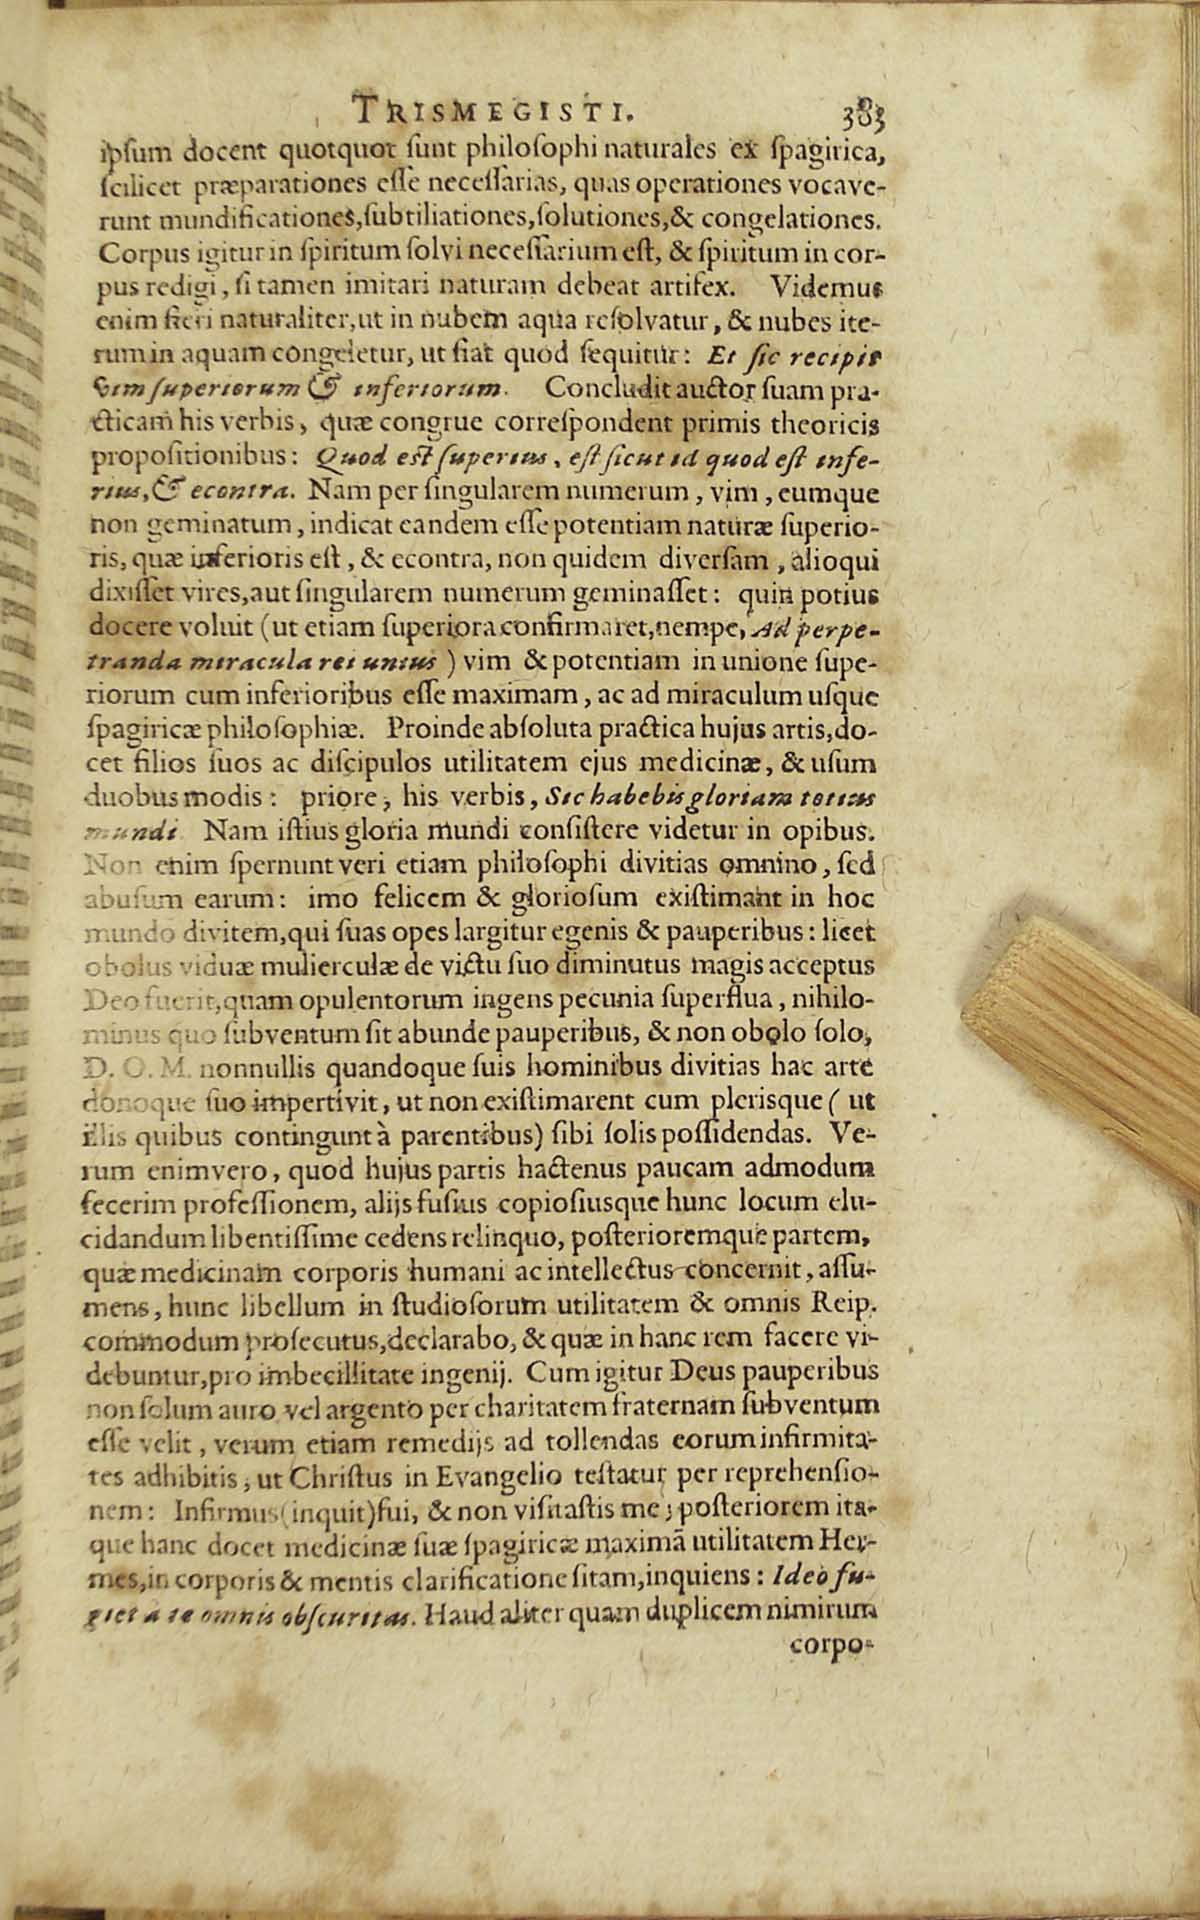 TRISMEGISTI. 383
ipſum docent quotquot ſunt philoſophi naturales ex ſpagirica,
ſcilicet præparationes eſſe neceſſarias, quas operationes vocave-
runt mundificationes, ſubtiliationes, ſolutiones, & congelationes.
Corpus igitur in ſpiritum ſolvi neceſſarium eſt, & ſpiritum in cor-
pus redigi, ſi tamen imitari naturam debeat artifex. Videmus
enim fieri naturaliter, ut in nubem aqua reſolvatur, & nubes ite-
rum in aquam congeletur, ut fiat quod ſequitur: Et ſic recipit
vim ſuperiorum & inferiorum. Concludit auctor ſuam pra-
cticam his verbis, quæ congrue correſpondent primis theoricis
propoſitionibus: Quod eſt ſuperius, eſt ſicut id quod eſt infe-
rius, & econtra. Nam per ſingularem numerum, vim, eumque
non geminatum, indicat eandem eſſe potentiam naturæ ſuperio-
ris, quæ inferioris eſt, & econtra, non quidem diverſam, alioqui
dixiſſet vires, aut ſingularem numerum geminaſſet: quin potius
docere voluit (ut etiam ſuperiora confirmaret, nempe, Ad perpe-
tranda miracula rei unius) vim & potentiam in unione ſupe-
riorum cum inferioribus eſſe maximam, ac ad miraculum uſque
ſpagiricæ philoſophiæ. Proinde abſoluta practica hujus artis, do-
cet filios ſuos ac diſcipulos utilitatem ejus medicinæ, & uſum
duobus modis: priore, his verbis, Sic habebis gloriam totius
mundi Nam iſtius gloria mundi conſiſtere videtur in opibus.
Non enim ſpernunt veri etiam philoſophi divitias omnino, ſed
abuſum earum: imo felicem & glorioſum exiſtimant in hoc
mundo divitem, qui ſuas opes largitur egenis & pauperibus: licet
obolus viduæ mulierculæ de victu ſuo diminutus magis acceptus
Deo fuerit, quam opulentorum ingens pecunia ſuperflua, nihilo-
minus quo ſubventum ſit abunde pauperibus, & non obolo ſolo,
D. O. M. nonnullis quandoque ſuis hominibus divitias hac arte
donoque ſuo impertivit, ut non exiſtimarent cum pleriſque (ut
illis quibus contingunt à parentibus) ſibi ſolis poſſidendas. Ve-
rum enimvero, quod hujus partis hactenus paucam admodum
fecerim profeſſionem, alijs fuſius copioſiusque hunc locum elu-
cidandum libentiſſime cedens relinquo, poſterioremque partem,
quæ medicinam corporis humani ac intellectus concernit, aſſu-
mens, hunc libellum in ſtudioſorum utilitatem & omnis Reip.
commodum proſecutus, declarabo, & quæ in hanc rem facere vi-
debuntur, pro imbecillitate ingenij. Cum igitur Deus pauperibus
non ſolum auro vel argento per charitatem fraternam ſubventum
eſſe velit, verum etiam remedijs ad tollendas eorum infirmita-
tes adhibitis, ut Chriſtus in Evangelio teſtatur per reprehenſio-
nem: Infirmus (inquit) fui, & non viſitaſtis me; poſteriorem ita-
que hanc docet medicinæ ſuæ ſpagiricæ maximã utilitatem Her-
mes, in corporis & mentis clarificatione ſitam, inquiens: Ideò fu-
giet a te omnis obſcuritas. Haud aliter quam duplicem nimirum
corpo-